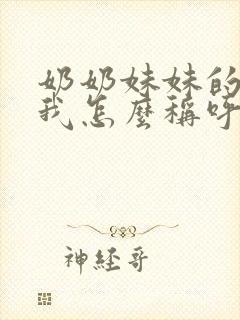 奶奶妹妹的
我怎麼稱呼
神經哥